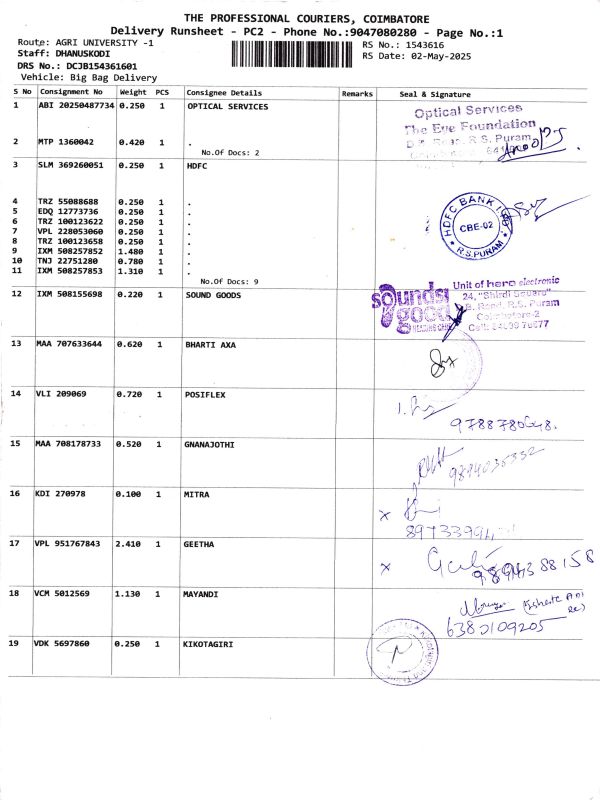 THE PROFESSIONAL COURIERS, COIMBATORE
Delivery Runsheet - PC2 - Phone No.:9047080280 - Page No.:1
Route: AGRI UNIVERSITY -1
RS No.: 1543616
Staff: DHANUSKODI
RS Date: 02-May-2025
DRS No.: DCJB154361601
Vehicle: Big Bag Delivery
S No Consignment No Weight PCS Consignee Details Remarks Seal & Signature
1 ABI 20250487734 0.250 1 OPTICAL SERVICES
Optical Services
The Eye Foundation
R.S. Puram
2 MTP 1360042 0.420 1 .
No.Of Docs: 2
3 SLM 369260051 0.250 1 HDFC
4 TRZ 55088688 0.250 1 .
5 EDQ 12773736 0.250 1 .
6 TRZ 100123622 0.250 1 .
7 VPL 228053060 0.250 1 .
8 TRZ 100123658 0.250 1 .
9 IXM 508257852 1.480 1 .
10 TNJ 22751280 0.780 1 .
11 IXM 508257853 1.310 1 .
No.Of Docs: 9
HDFC BANK
CBE-02
R.S.PURAM
12 IXM 508155698 0.220 1 SOUND GOODS
sounds good
Unit of hero electronic
24, "Shirdi Square"
R.S. Puram
Coimbatore-2
13 MAA 707633644 0.620 1 BHARTI AXA
14 VLI 209069 0.720 1 POSIFLEX
15 MAA 708178733 0.520 1 GNANAJOTHI
9894035332
16 KDI 270978 0.100 1 MITRA
x
17 VPL 951767843 2.410 1 GEETHA
x
18 VCM 5012569 1.130 1 MAYANDI
6380109205
19 VDK 5697860 0.250 1 KIKOTAGIRI